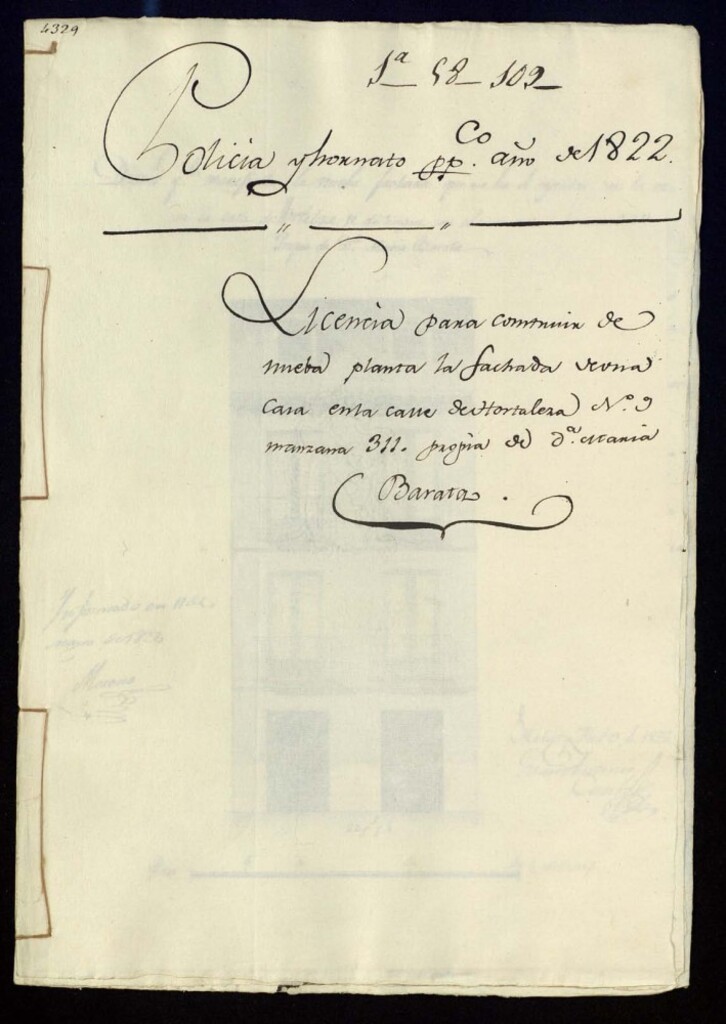 4329
1ª 58 109
Policia y hornato pp.co año de 1822.
Licencia para construir de
nueba planta la fachada de una
casa en la calle de Hortaleza Nº 9
manzana 311. propia de Dª Maria
Barata.